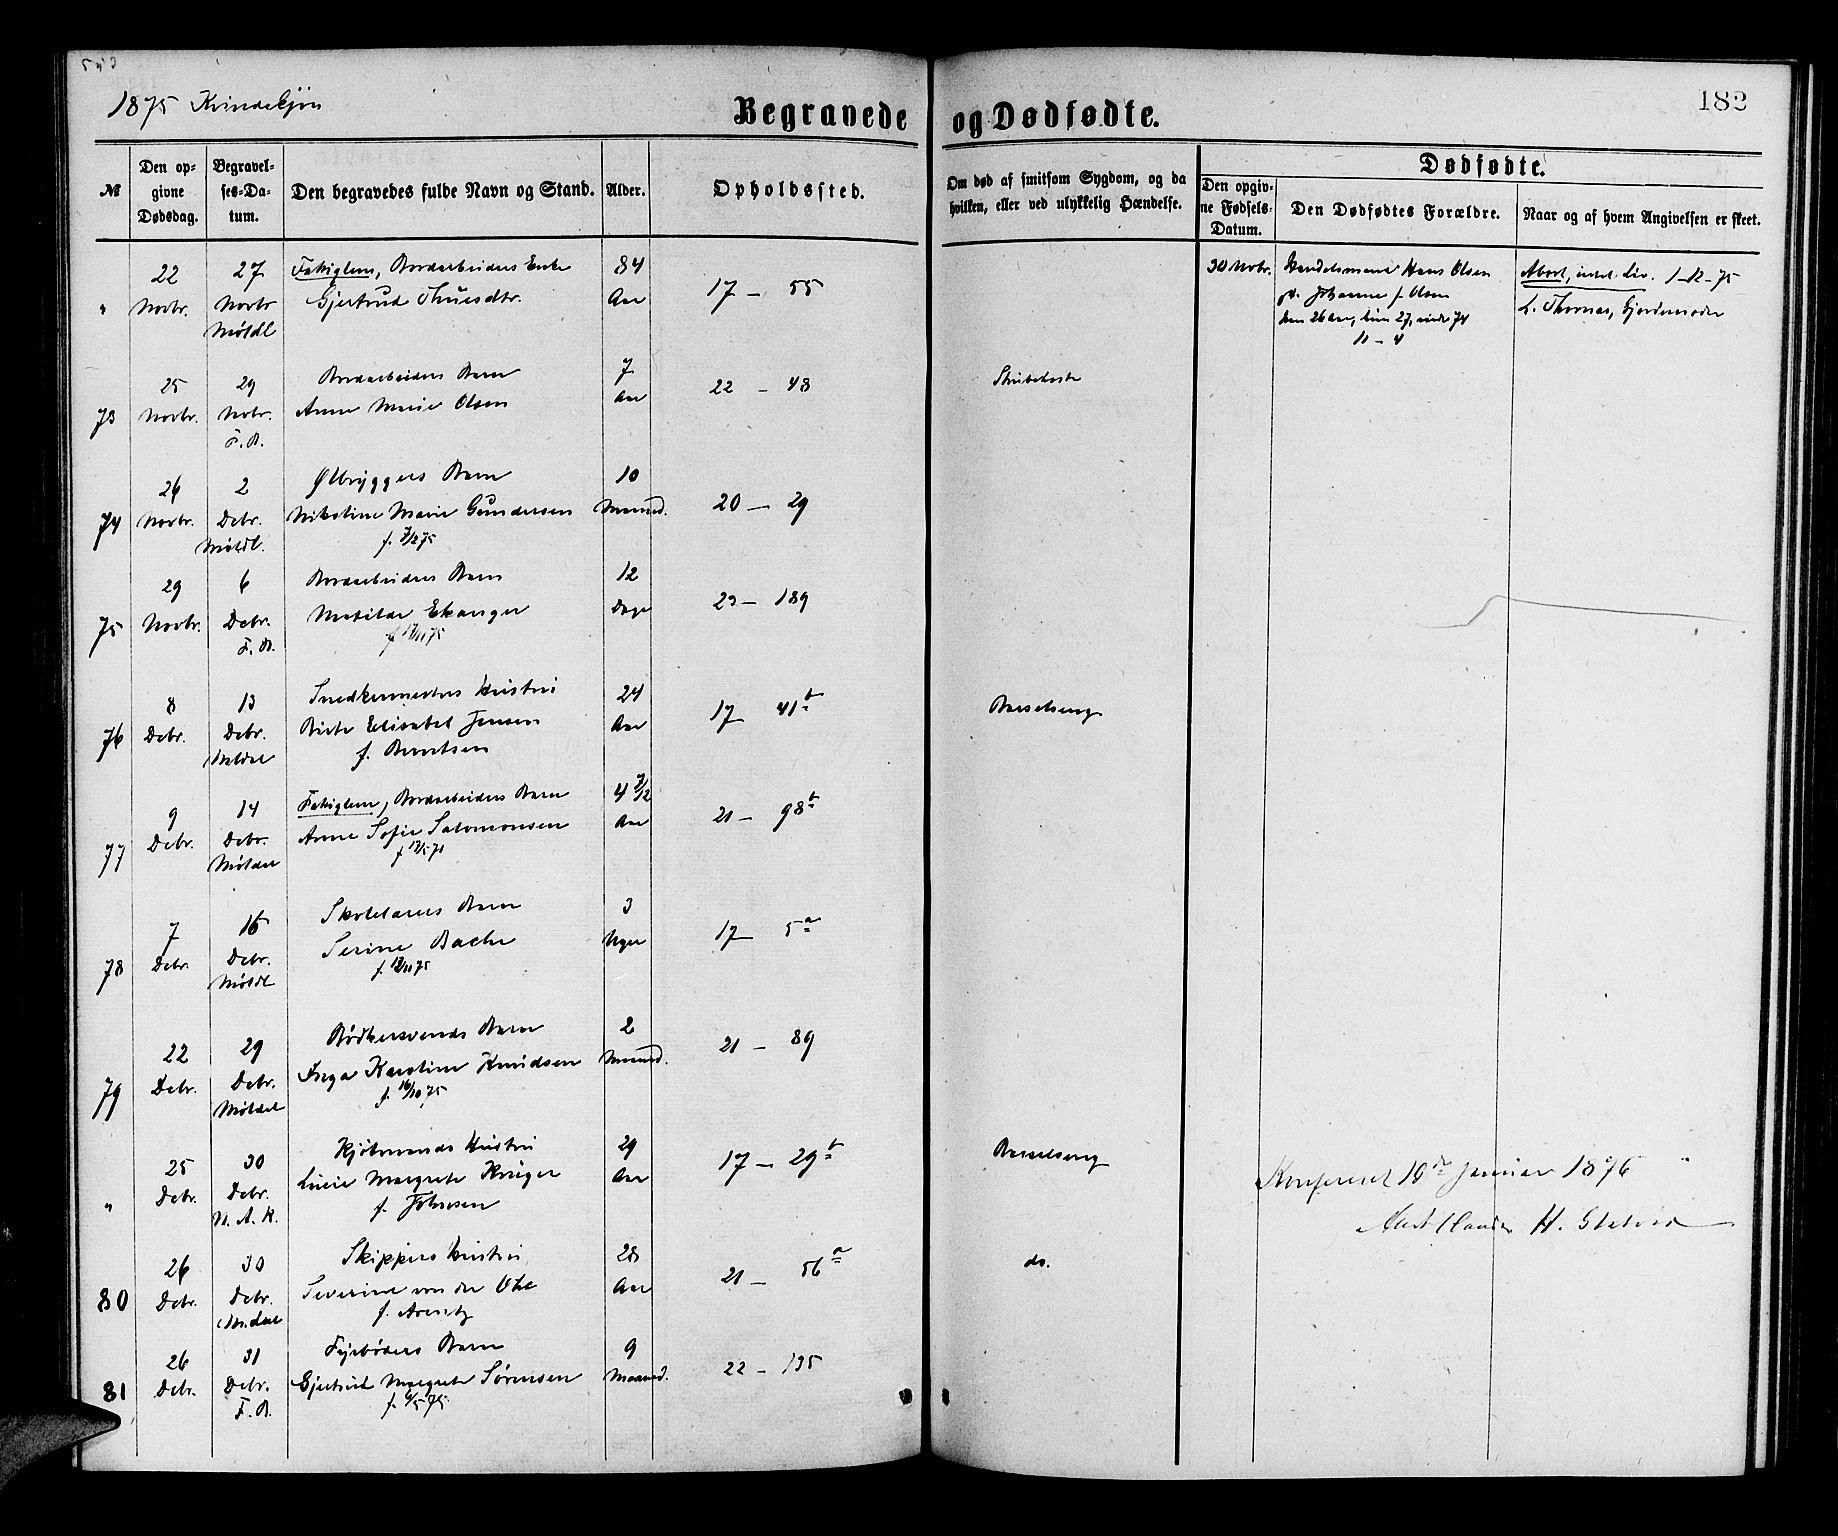 1875 Kvindekjøn
Begravede og Dødfødte.
182
№
Den opgivne Dødsdag.
Begravelses-Datum.
Den begravedes fulde Navn og Stand.
Alder.
Opholdssted.
Om død af smitsom Sygdom, og da hvilken, eller ved ulykkelig Hændelse.
Dødfødte.
Den opgivne Fødsels-Datum.
Den Dødfødtes Forældre.
Naar og af hvem Angivelsen er skeet.
" 22 Novbr. 27 Novbr Møldl
Fattiglem, Bordarbeiders Enke
Gjertrud Thuesdtr.
84 Aar 17 — 55
30 Novbr. Handelsmand Hans Olsen
Johanne f. Olsen
han 26 Aar, hun 27,
11 - 4
Abort, intet Liv. 1-12-75
L. Thomas, Gjordemoder
73 25 Novbr. 29 Novbr. F. B.
Bordarbeiders Barn
Anne Marie Olsen
7 Aar 22 — 48
Strubehoste
74 26 Novbr. 2 Debr. Møldl.
Ølbryggers Barn
Nikoline Marie Gundersen
f. 7/2 75
10 Maaned. 20 — 29
75 29 Novbr. 6 Debr. F. B.
Bordarbeiders Barn
Matilde Ekanger
f. 17/11 75
12 Dage 23 — 189
76 8 Debr. 13 Debr. Møldal
Snedkermesters Hustru
Birte Elisabet Jensen
f. Berntsen
24 Aar 17 — 41 b
Barselseng
77 9 Debr. 14 Debr. Møldal
Fattiglem, Bordarbeiders Barn
Anne Sofie Salomonsen
f 17/5 71
4 7/12 Aar 21 — 98 b
78 7 Debr. 15 Debr. Møldl
Skolelærers Barn
Serine Bache
f. 18/11 75
3 Uger 17 — 5 a
79 22 Debr. 29 Debr. Møldal
Bødkersvends Barn
Inga Karoline Knudsen
f. 16/10 75
2 Maaned. 21 — 89
" 25 Debr. 30 Debr. N. A. K.
Kjøbmands Hustru
Lucie Margrete Krüger
f. Johnsen
29 Aar 17 — 29 b
Barselseng
Konfereret 10de Januar 1876
H.
80 26 Debr. 30 Debr. M.dal
Skippers Hustru
Severine von der Ohe
f. Arentz
28 Aar 21 — 56 a
do.
81 26 Debr. 31 Debr. F. B.
Fyrbøders Barn
Gjertrud Margrete Sørensen
f. 6/5 75
9 Maaned. 22 — 135